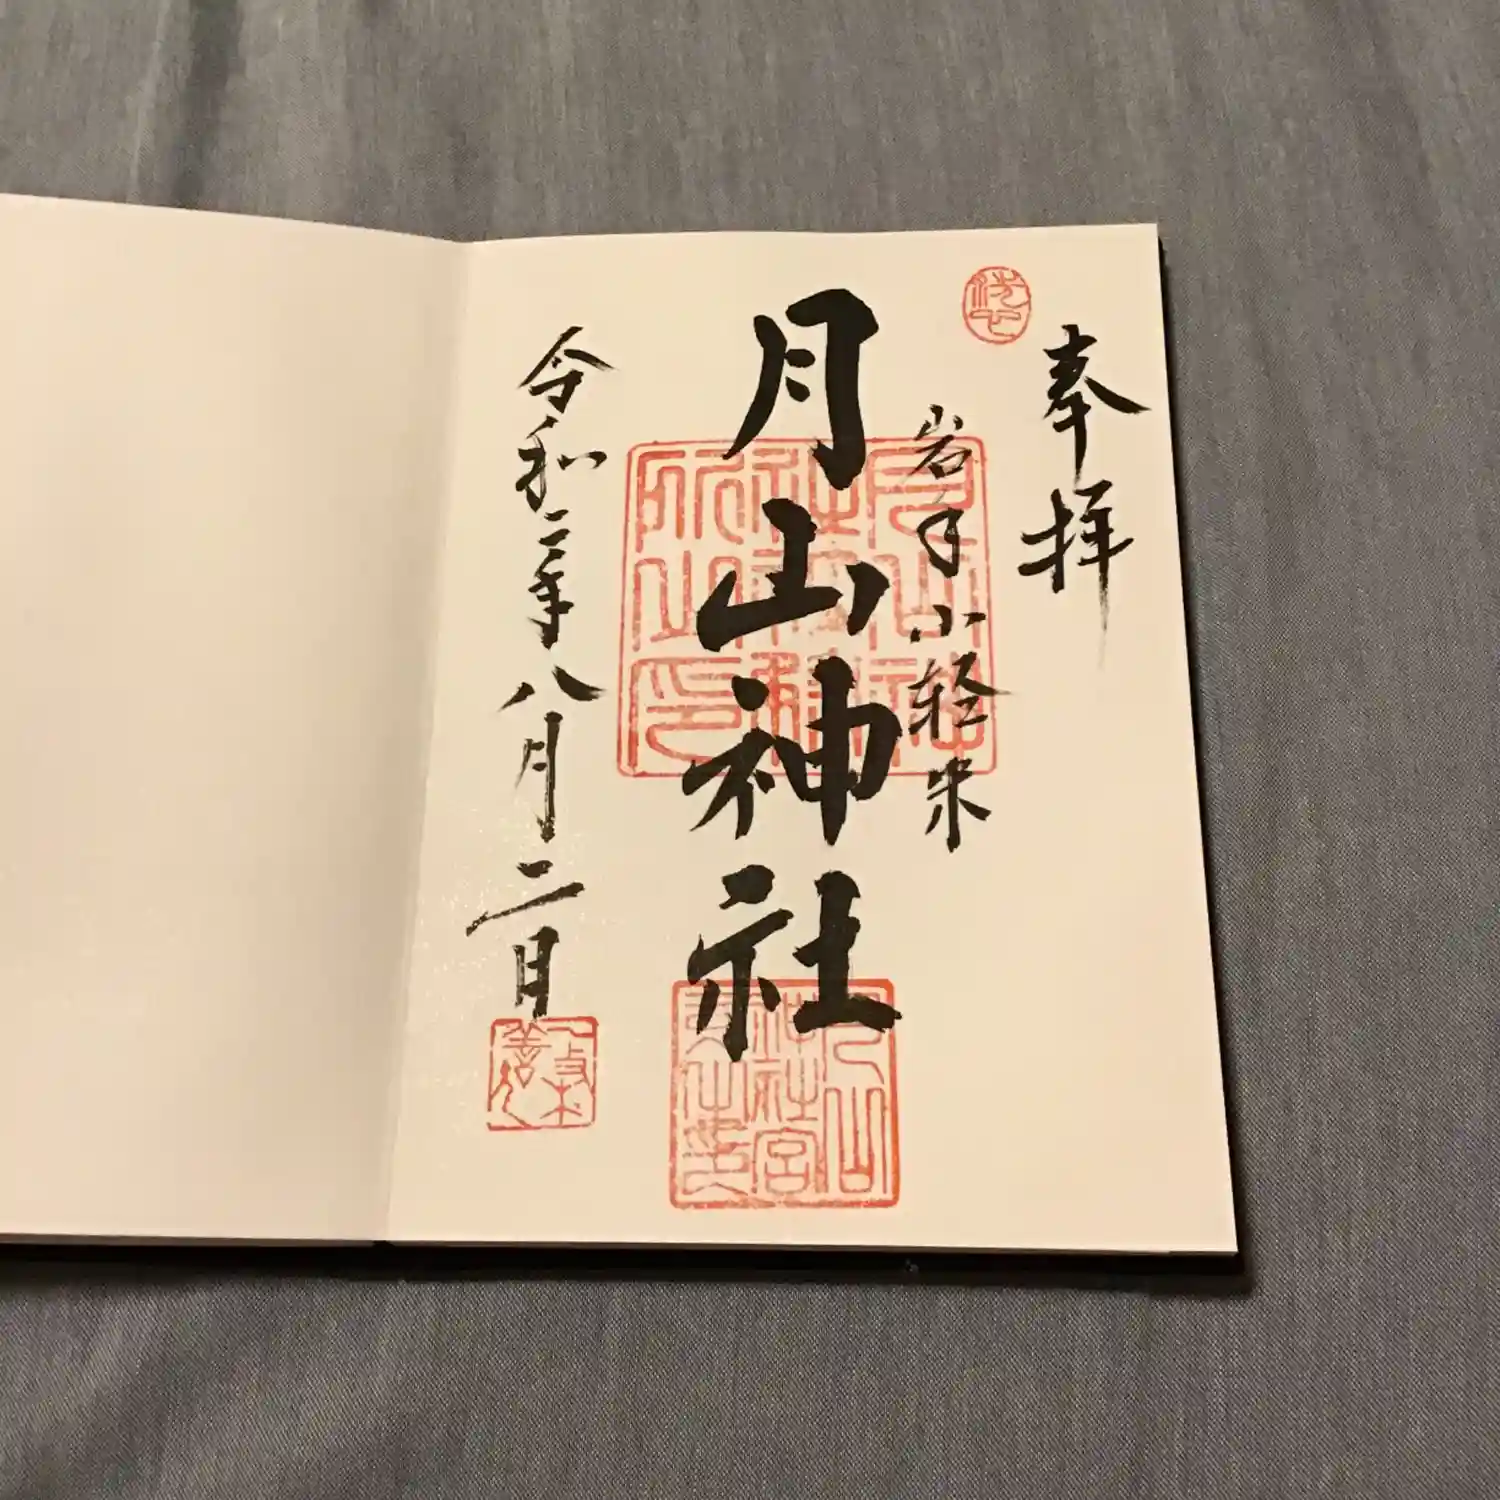 奉拝
岩手小軽米
月山神社
令和二年八月二日